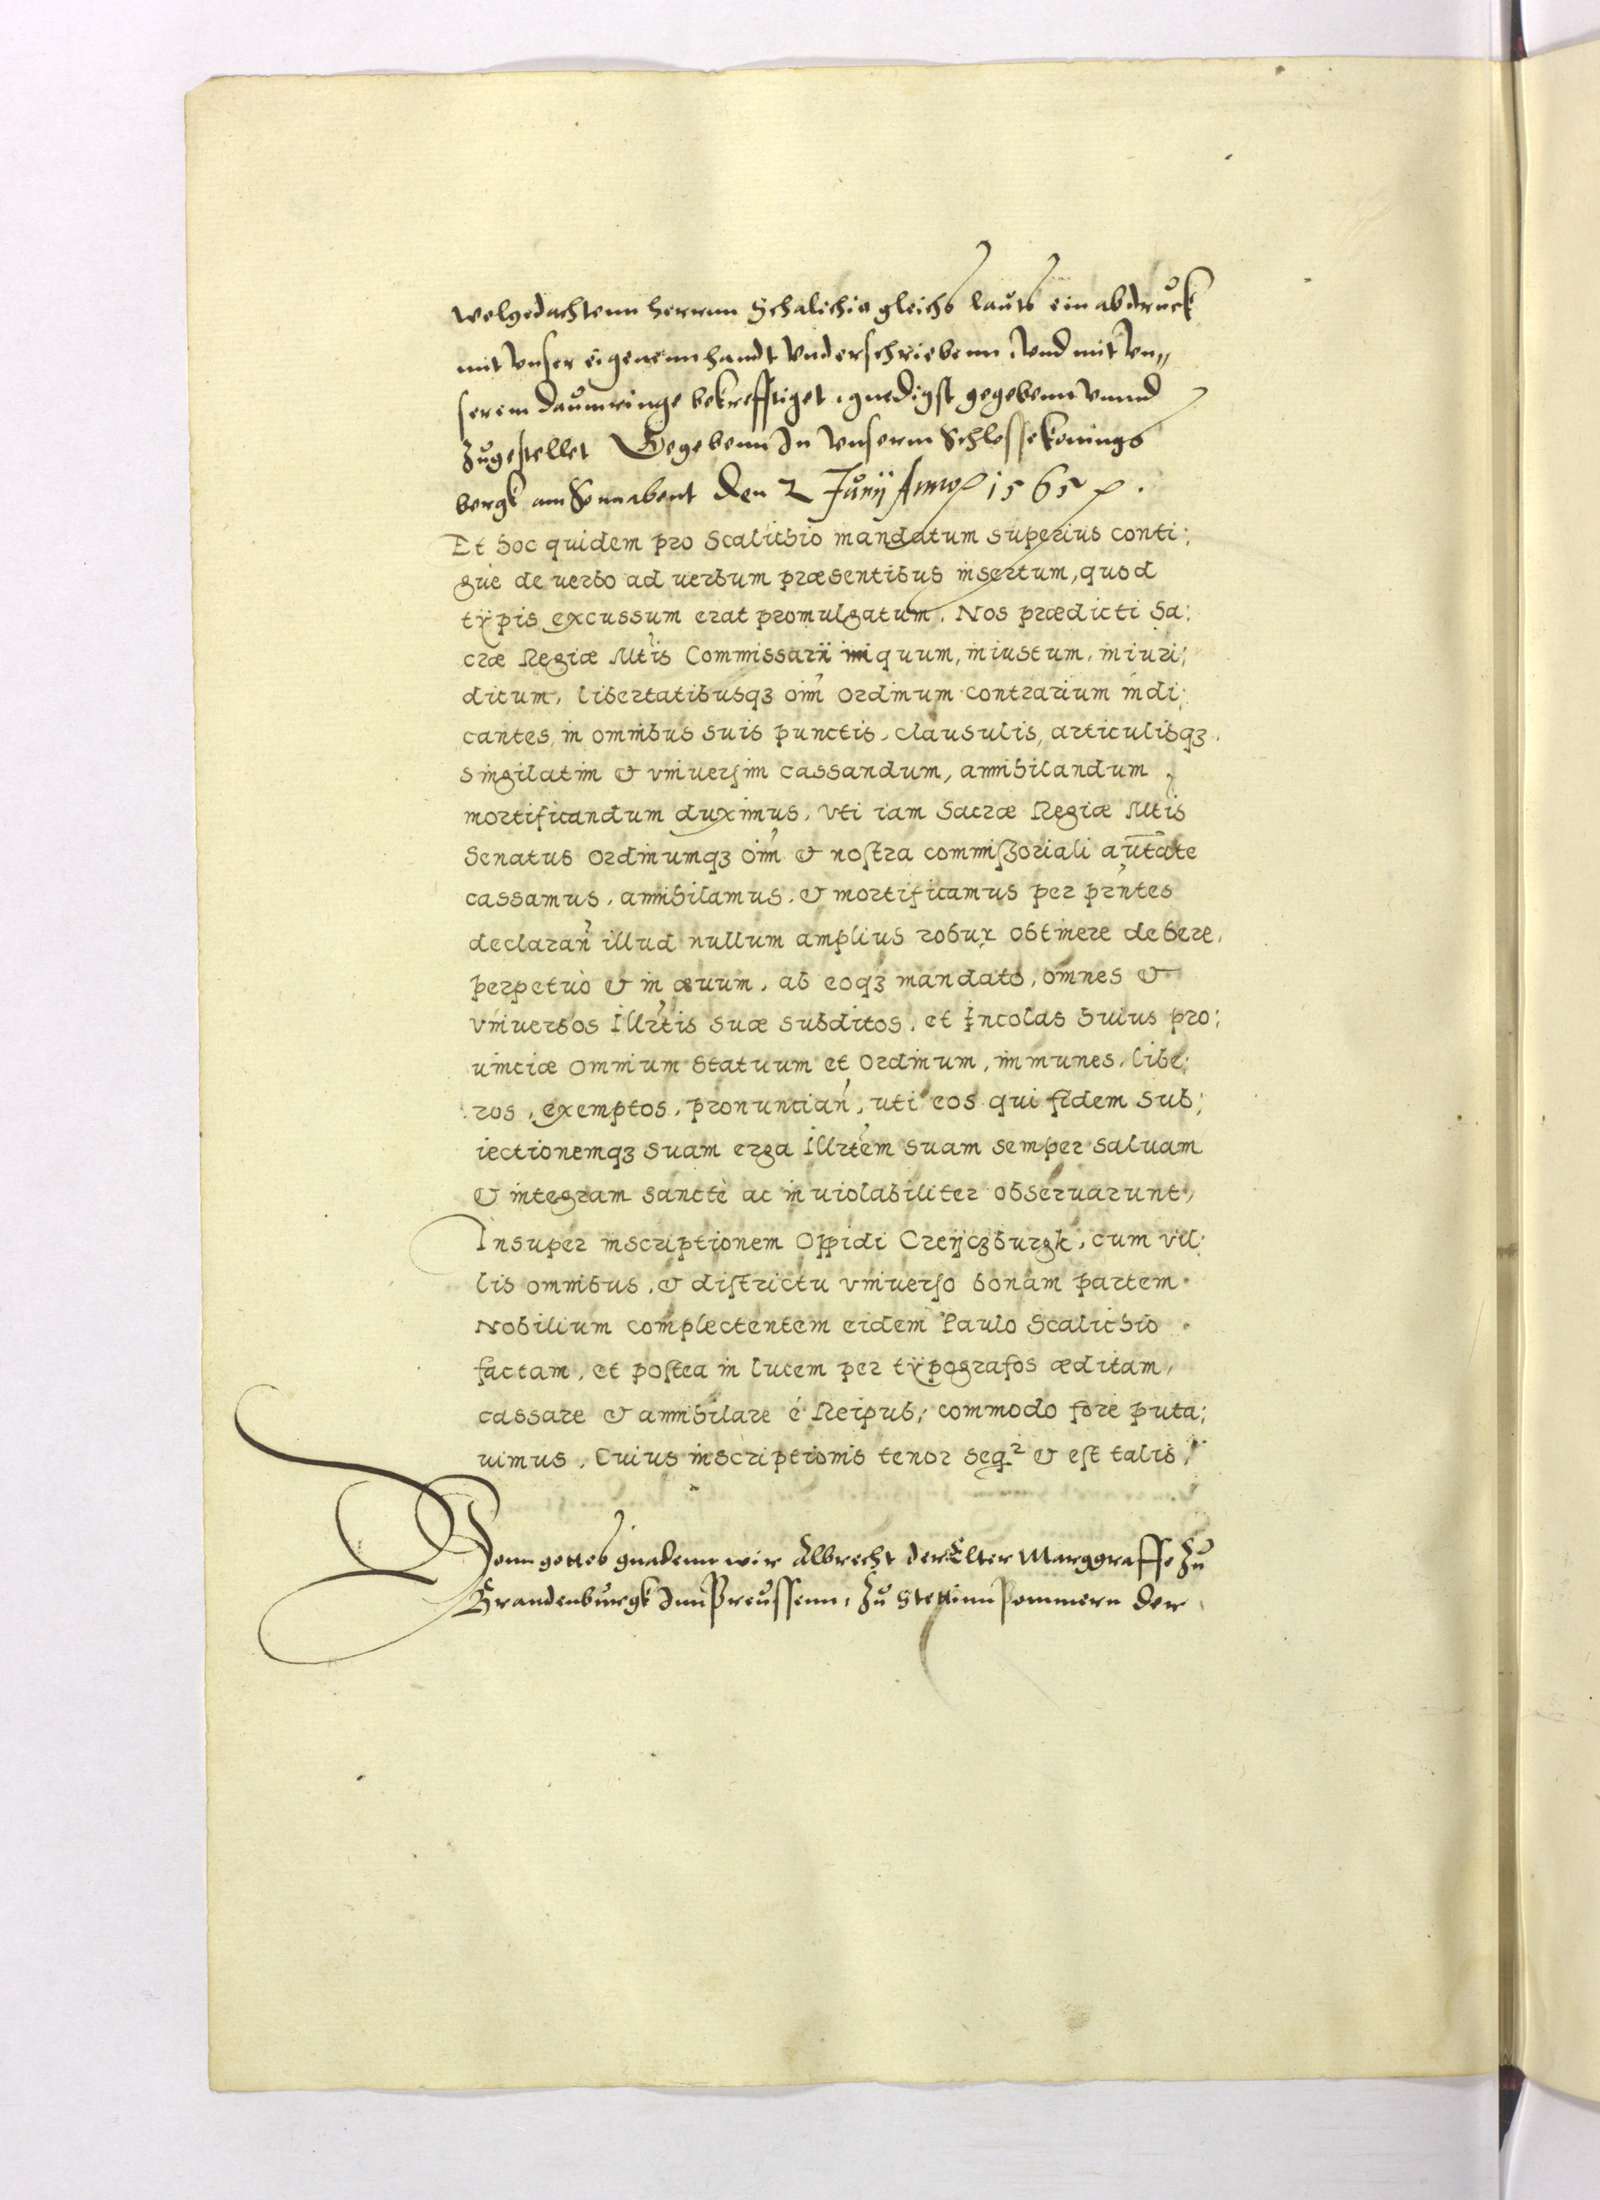 wolgedachtenn herrnn Schalichio gleichs lauts ein abdruck
mit vnser eigenenn handt vnderschriebenn, vnd mit vn„
serem daumringe bekrefftiget, gnedigst gegebenn vnnd
zugestellet Gegebenn In vnserm Schlosse Konings
bergk am Sonnabent den 2 Junij Anno 1565
Et hoc quidem pro Scalichio mandatum superius conti:
guè de uerbo ad uerbum præsentibus insertum, quod
typis excussum erat promulgatum. Nos prædicti Sa:
cræ Regiæ Mtis Commissarii iniquum, iniustum, iniuri:
dicum, libertatibusqʒ oim̄ ordinum contrarium iudi:
cantes, in omnibus suis punctis, clausulis, articulisqʒ
singilatim & vniuersim cassandum, annihilandum
mortificandum duximus, vti iam Sacræ Regiæ Mtis
Senatus ordinumqʒ oim̄ & nostra commiſʒoriali autāte
cassamus, annihilamus, & mortificamus per prn̄tes
declaran̄ illud nullum amplius robur obtinere debere,
perpetuò & in æuum, ab eoqʒ mandato, omnes &
vniuersos Illrtis suæ subditos, et Incolas huius pro:
uinciæ omnium statuum et ordinum, immunes, libe:
ros, exemptos, pronuncian̄, uti eos qui fidem sub:
iectionemqʒ suam erga Illrtem suam semper saluam
& integram sanctè ac inuiolabiliter obseruarunt,
Insuper inscriptionem Oppidi Creijczburgk, cum vil:
lis omnibus, & districtu vniuerso bonam partem
Nobilium complectentem eidem Paulo Scalichio
factam, et postea in lucem per typografos æditam,
cassare & annihilare é Reipub, commodo fore puta:
uimus, Cuius inscriptionis tenor seqr & est talis,
Vonn gottes gnadenn wir Albrecht der Elter Marggraffe Zu
Brandenburgk Inn Preussenn, Zu Stettinn Pommern der